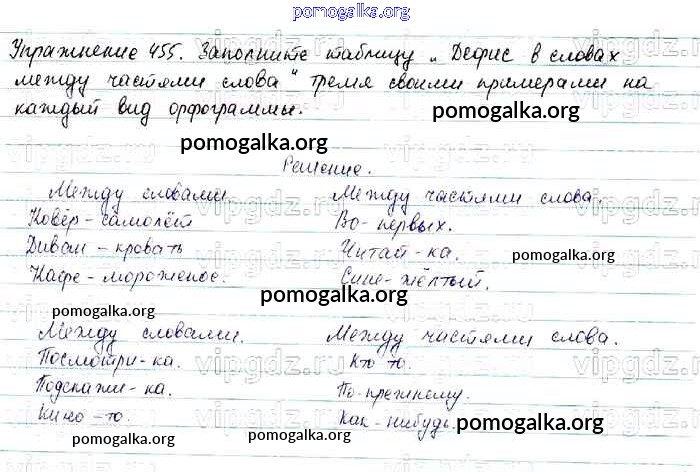 pomogalka.org
Упражнение 455. Заполните таблицу „Дефис в словах
между частями слова" тремя своими примерами на
каждый вид орфограммы.
pomogalka.org
pomogalka.org
Решение.
Между словами Между частями слова.
Ковёр-самолёт Во-первых.
Диван-кровать Читай-ка. pomogalka.org
Кафе-мороженое. Сине-жёлтый.
pomogalka.org
pomogalka.org
Между словами. Между частями слова.
Посмотри-ка. Кто то.
Подскажи-ка. По-прежнему.
Кино-то. Как-нибудь.
pomogalka.org pomogalka.org
vipgdz.ru